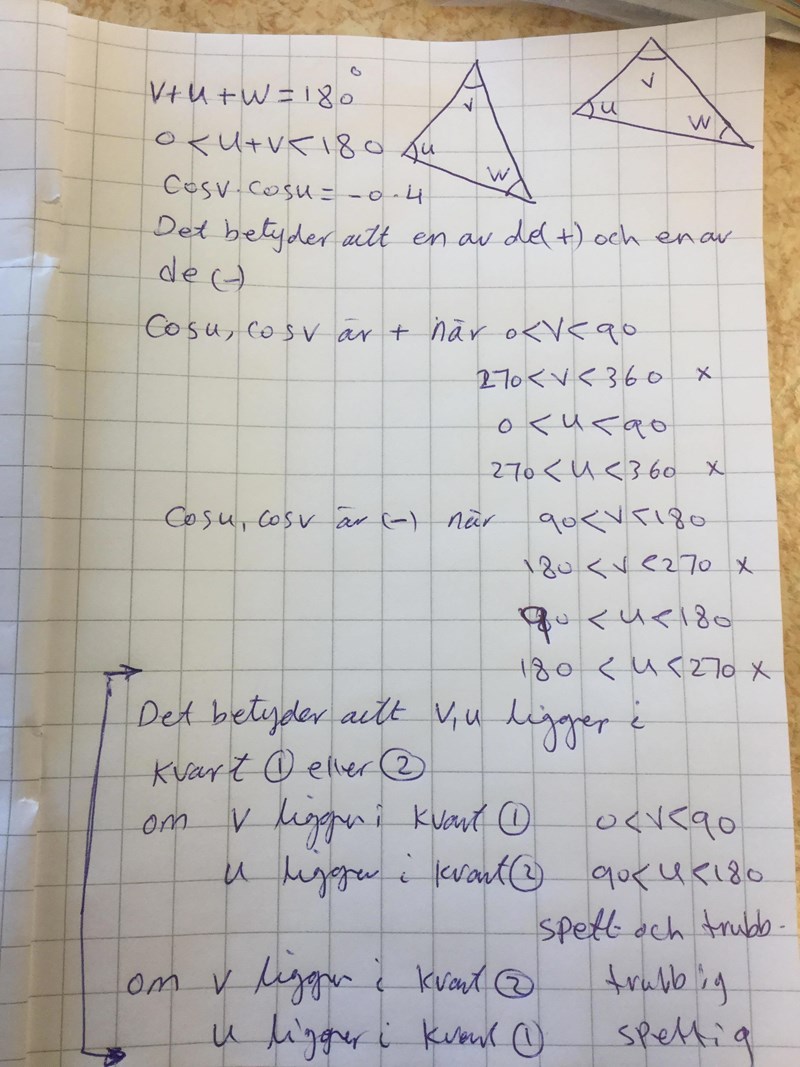 V+U+W=180°
0<U+V<180
Cosv·cosu=-0.4
Det betyder att en av de(+) och en av
de (-)
Cosu, cosv är + när 0<V<90
270<V<360 x
0<U<90
270<U<360 x
Cosu, cosv är (-) när 90<V<180
180<V<270 x
90<U<180
180<U<270 x
Det betyder att V,U ligger i
kvart ① eller ②
om V ligger i kvart ① 0<V<90
U ligger i kvart ② 90<U<180
spett och trubb-
om V ligger i kvart ② trubbig
U ligger i kvart ① spettig
V
U
W
V
U
W